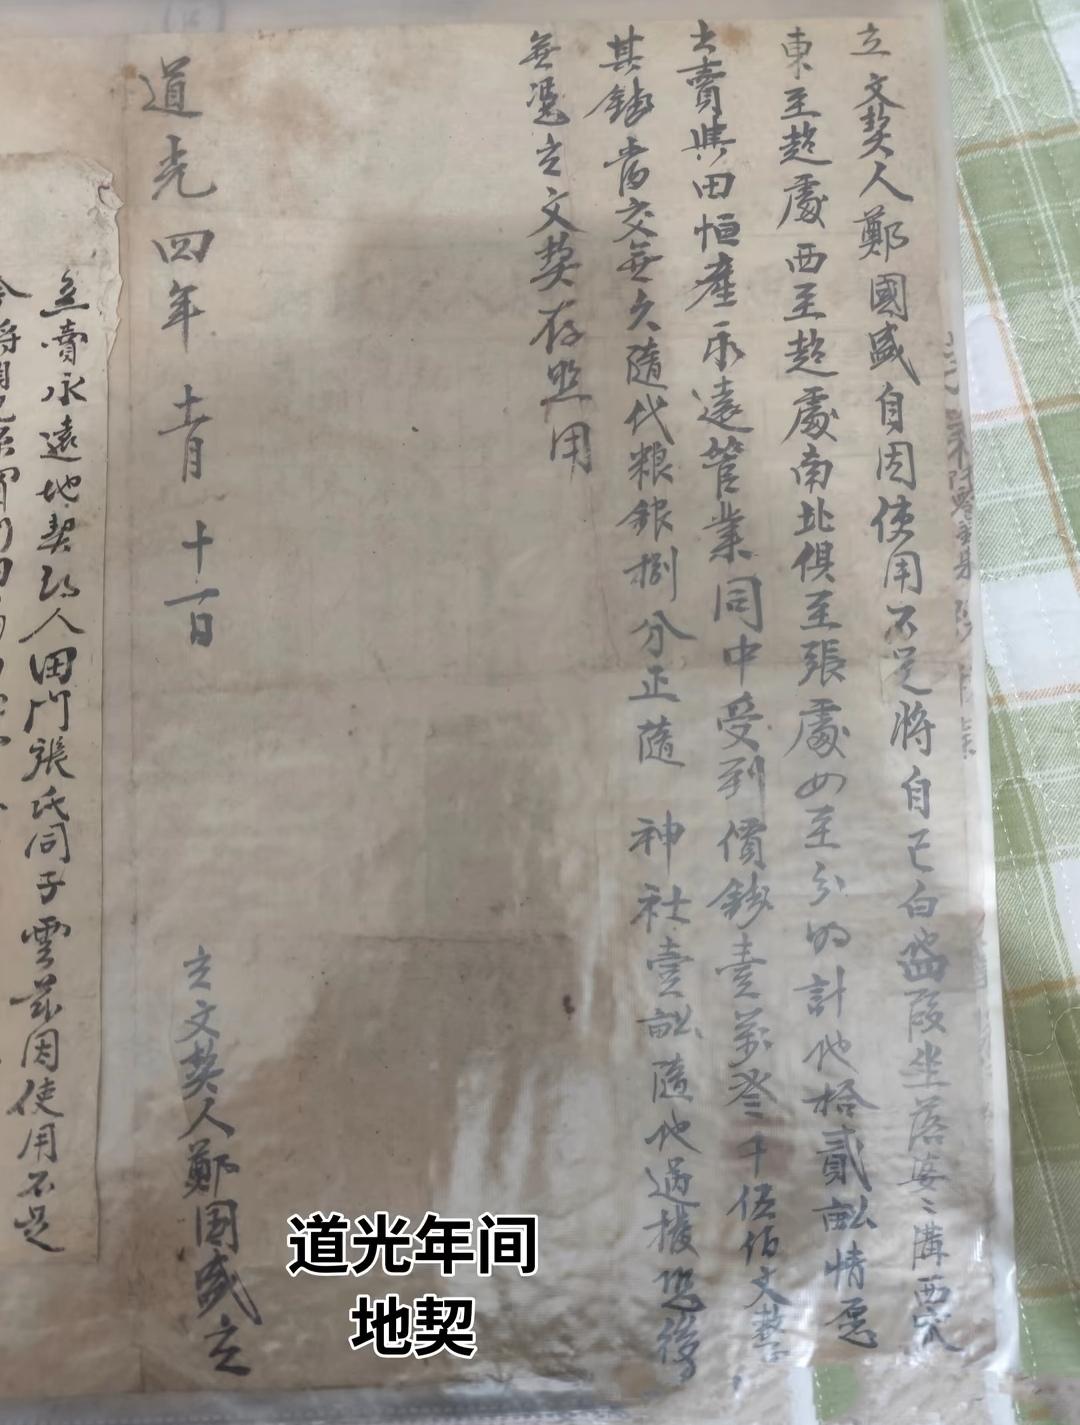 立文契人鄭國盛自因使用不足將自己白
段坐落溝西
東至趙處西至趙處南北俱至張處四至分明計地拾貳畝情愿
立賣與田恒產永遠管業同中受到價錢壹萬叁千伍佰文整
其錢當交無欠隨代粮銀捌分正隨 神社壹畝隨地過撥恐後
無憑立文契存照用
道光四年十一月十一日
立文契人鄭国盛立
立賣永遠地契約人田門張氏同子雲 因使用不足
今將
道光年间
地契